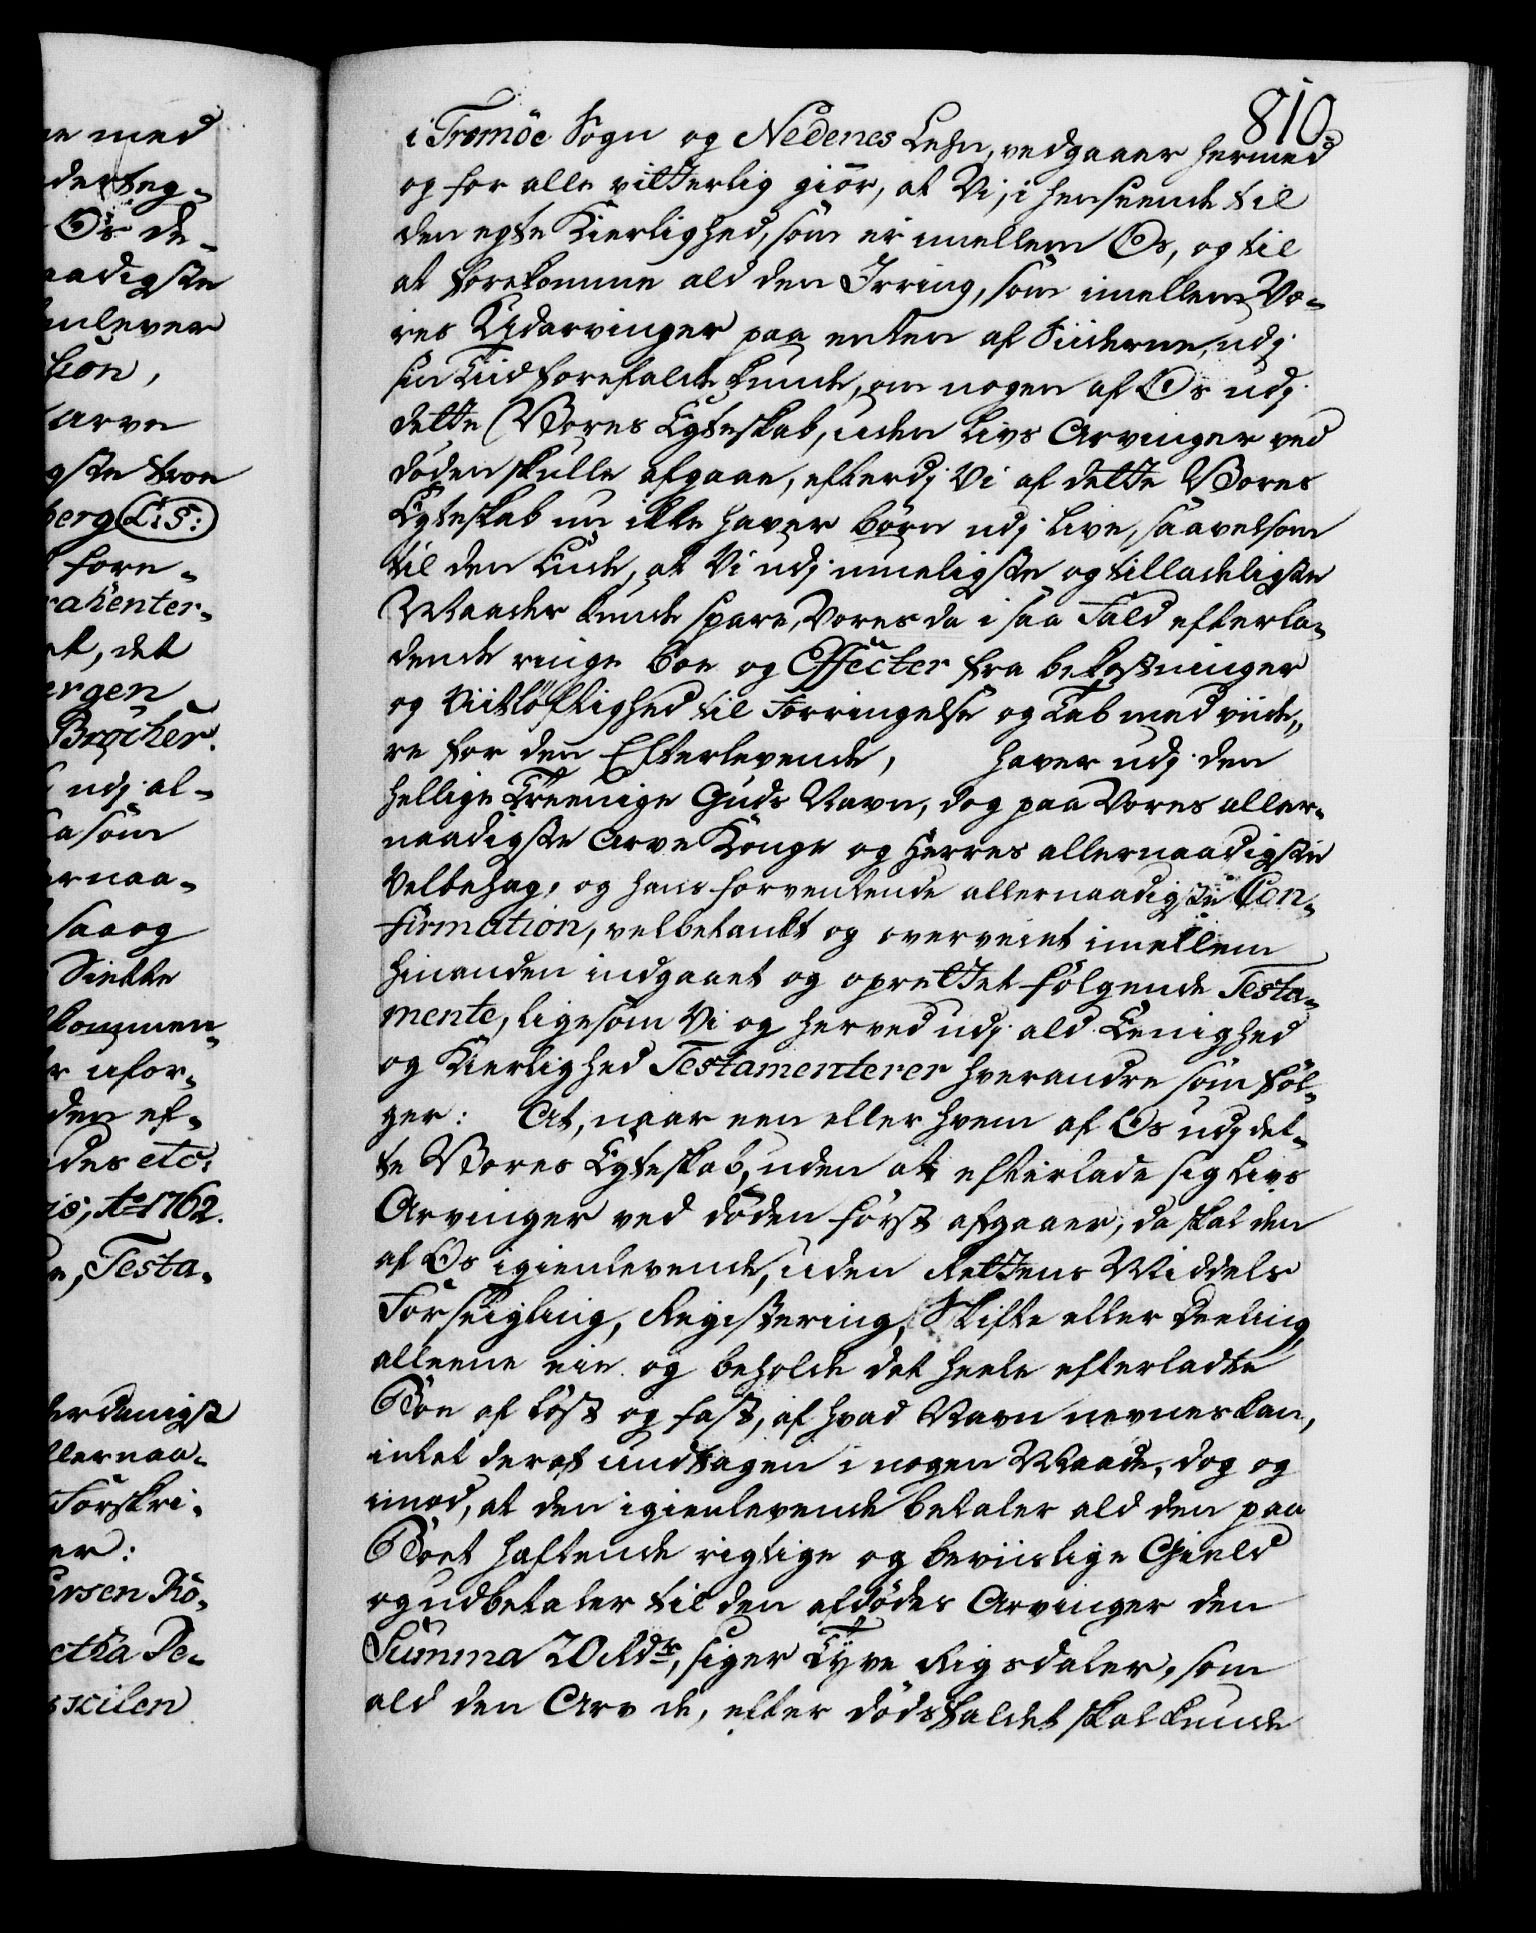 ne med
derteg-
Os de-
aadigste
enlever
tion,
arve
gste troe
berg L: S:
fore-
racenter-
et, det
ergen
Brøcher.
udj al-
saasom
ernaa-
saa og
Siette
kommen-
r ufor-
den ef-
des etc:
is, Ao 1762.
e, Testa-
derdanigst
llernaa-
Forskri-
er:
ersen Rö-
etha Pe-
skilen
810.
i Tromöe Sogn og Nedenes Lehn, vedgaaer hermed
og for alle vitterlig giör, at Vi, i henseende til
den egte Kierlighed, som er imellem Os, og til
at forekomme ald den Irring, som imellem Vo-
res Udarvinger paa enten af Siiderne, udj
sin Tiid forefalde kunde, om nogen af Os udj
dette Vores Egteskab, uden Livs Arvinger ved
døden skulle afgaae, efterdj Vi af dette Vores
Egteskab nu ikke haver börn udj live, saavelsom
til den Ende, at Vi udj mueligste og tilladeligste
Maader kunde spare, Vores da i saa Fald efterla-
dende ringe boe og Effecter fra bekostninger
og Viitløftighed til Forringelse og Tab med viide-
re for den Efterlevende, haver udj den
hellige Treenige Guds Navn, dog paa Vores aller-
naadigste Arve Konge og Herres allernaadigste
Velbehag, og hans forventende allernaadigste Con-
firmation, velbetænkt og overveiet imellem
hinanden indgaaet og oprettet følgende Testa-
mente, ligesom Vi og herved udj ald Eenighed
og Kierlighed Testamenterer hverandre som föl-
ger: At, naar een eller hvem af Os udj det-
te Vores Egteskab, uden at efterlade sig Livs
Arvinger ved døden först afgaaer, da skal den
af Os igienlevende, uden Rettens Middels
Forseigling, Registering, Skifte eller Deeling
alleene eie og beholde det heele efterladte
Boe af løst og fast, af hvad Navn nevnes kan,
intet deraf undtagen i nogen Maade, dog og
imod, at den igienlevende betaler ald den paa
Boet haftende rigtige og beviislige Gield
og udbetaler til den afdødes Arvinger den
Summa 20 Rdr, siger Tyve Rigsdaler, som
ald den Arv de, efter dödsfaldet skal kunde